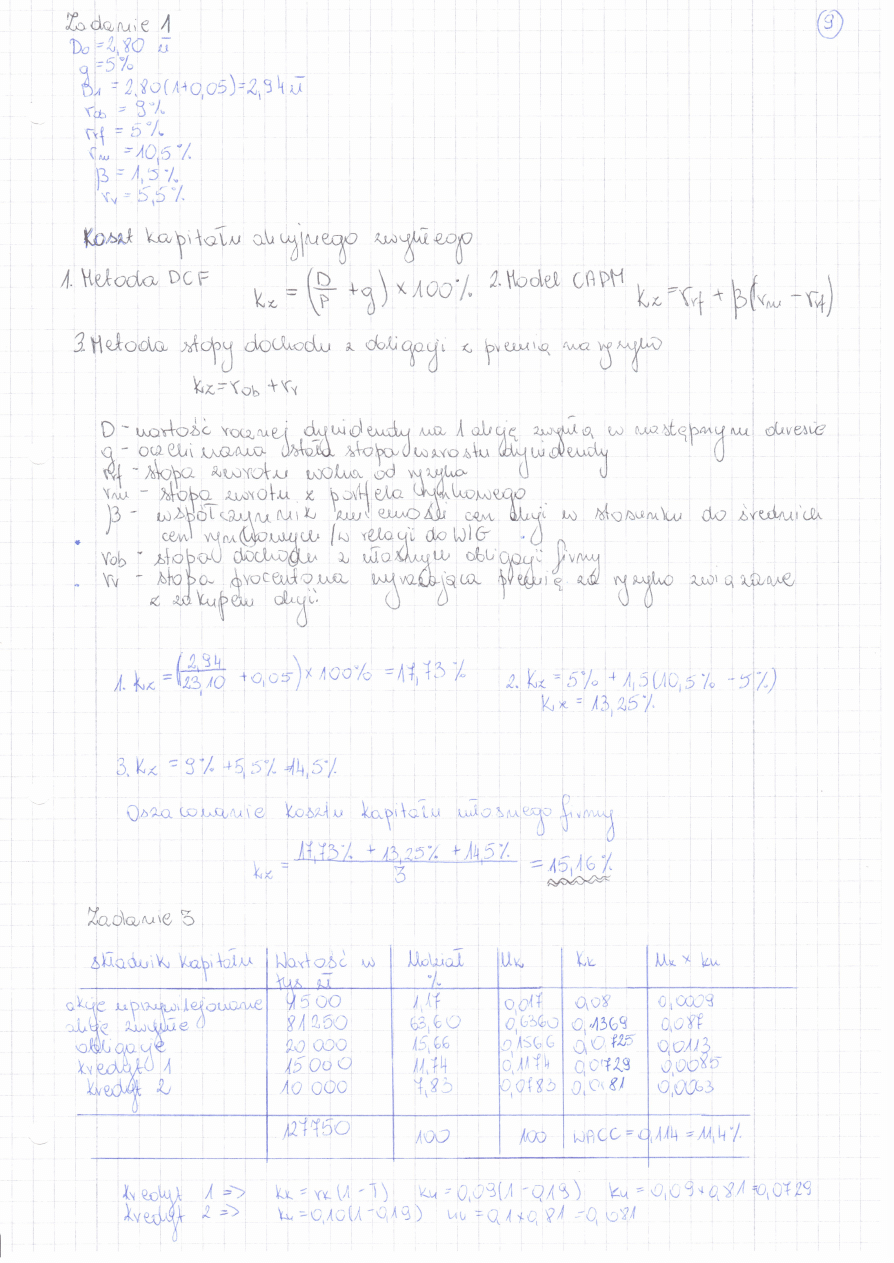 9
Zadanie 1
D₀ = 2,80 zł
g = 5%
D₁ = 2,80(1+0,05)=2,94 zł
rob = 9%
rrf = 5%
rm = 10,5%
β = 1,5%
rr = 5,5%
Koszt kapitału akcyjnego zwykłego
1. Metoda DCF kz = (D/P + g) × 100% 2. Model CAPM kz = rrf + β(rm − rrf)
3. Metoda stopy dochodu z obligacji z premią na ryzyko
kz = rob + rr
D - wartość rocznej dywidendy na 1 akcję zwykłą w następnym okresie
g - oczekiwana stała stopa wzrostu dywidendy
rrf - stopa zwrotu wolna od ryzyka
rm - stopa zwrotu z portfela rynkowego
β - współczynnik zmienności cen akcji w stosunku do średnich
cen rynkowych /w relacji do WIG
rob - stopa dochodu z własnych obligacji firmy
rr - stopa procentowa wyrażająca premię za ryzyko związane
z zakupem akcji.
1. kz = (2,94/23,10 + 0,05) × 100% = 17,73% 2. kz = 5% + 1,5(10,5% - 5%)
kz = 13,25%
3. kz = 9% + 5,5% = 14,5%
Oszacowanie kosztu kapitału własnego firmy
kz = 17,73% + 13,25% + 14,5% / 3 = 15,16%
Zadanie 3
składnik kapitału Wartość w tys zł Udział % Uk Kk Uk × kk
akcje uprzywilejowane 1500 1,17 0,017 0,08 0,0009
akcje zwykłe 81250 63,60 0,6360 0,1369 0,087
obligacje 20 000 15,66 0,1566 0,0725 0,0113
kredyt 1 15000 11,74 0,1174 0,0729 0,0085
kredyt 2 10 000 7,83 0,0783 0,081 0,0063
127750 100 100 WACC = 0,114 = 11,4%
kredyt 1 => kk = rk(1 - T) kk = 0,09(1 - 0,19) kk = 0,09 × 0,81 = 0,0729
kredyt 2 => kk = 0,10(1 - 0,19) kk = 0,1 × 0,81 = 0,081